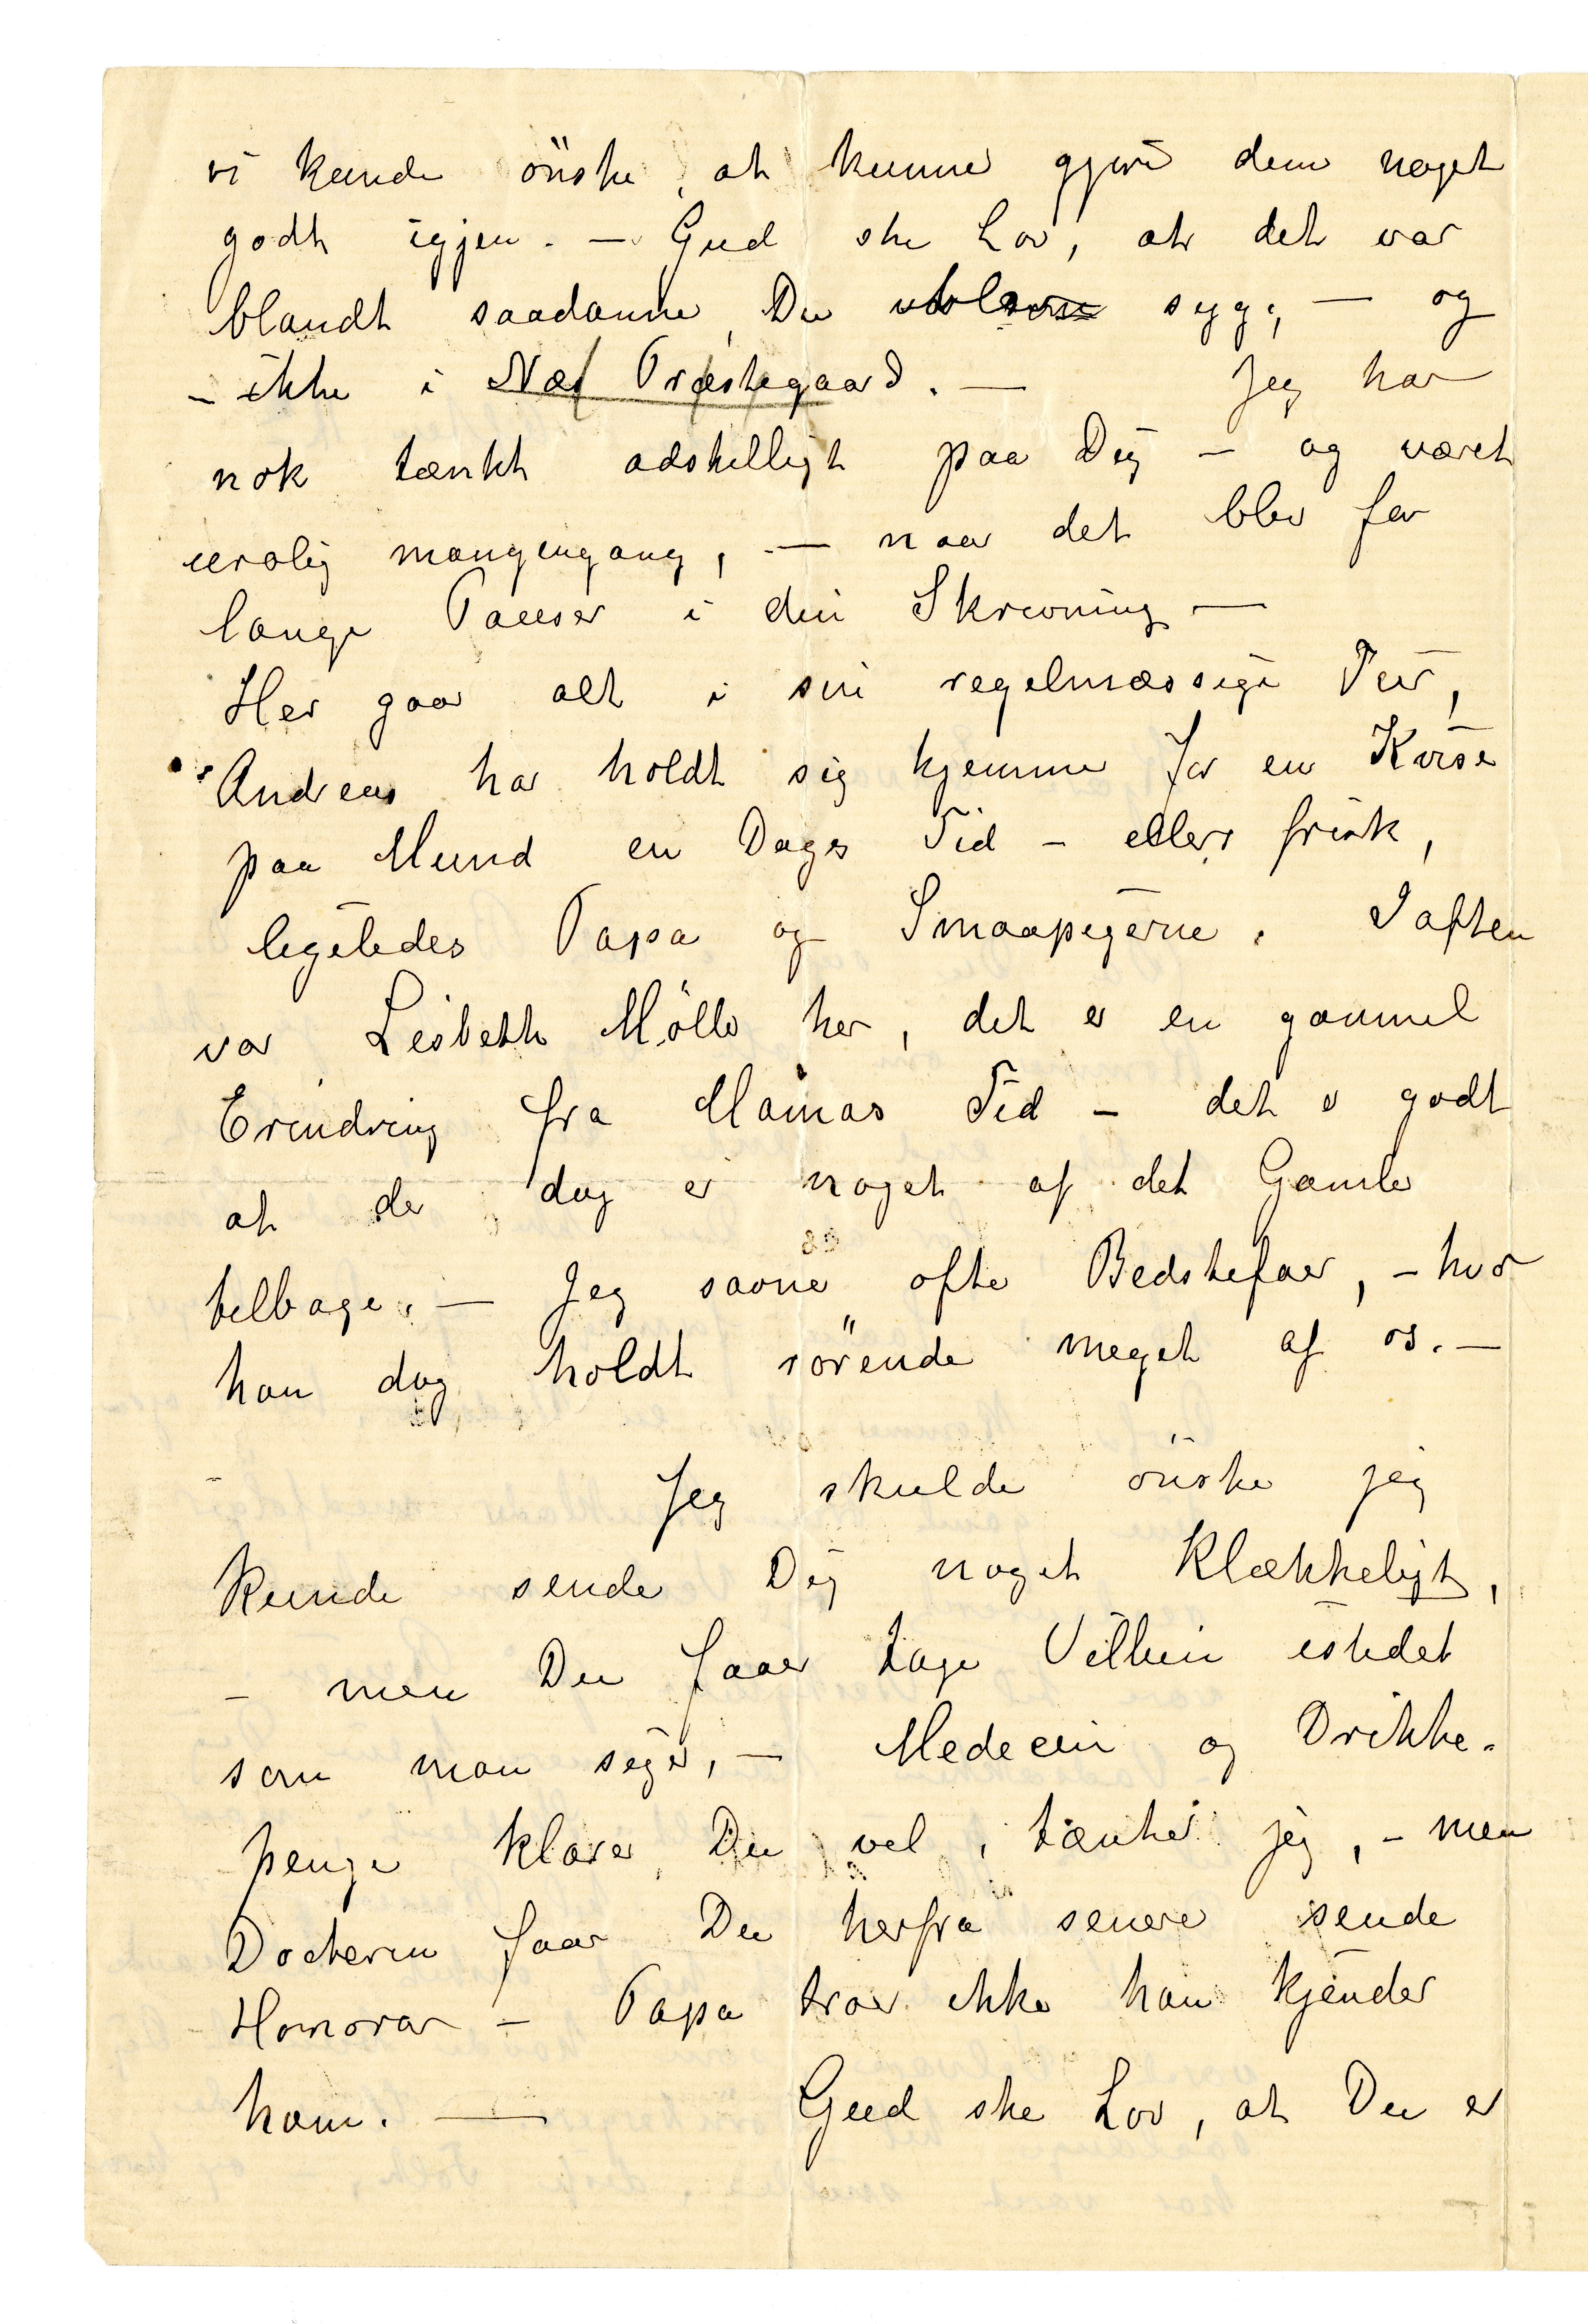 vi kunde önske, at kunne gjøre dem noget
godt igjen. — Gud ske Lov, at det var
blandt saadanne, Du syg, — og
– ikke i Næs Præstegaard. — Jeg har
nok tænkt adskilligt paa Dig – og været
urolig mangengang, — naar det blev for
lange Pauser i din Skrivning —
Her gaar alt i sin regelmæssige Tur,
Andreas har holdt sig hjemme for en Kvise
paa Mund en Dags Tid – ellers frisk,
ligeledes Papa og Smaapigerne. Iaften
var Lisbeth Mölle her, det er en gammel
Erindring fra Mamas Tid – det er godt
at der dog er noget af det Gamle
tilbage. — Jeg savner ofte Bedstefaer, – hvor
han dog holdt rörende meget af os. —
Jeg skulde önske jeg
kunde sende Dig noget Klækkeligt,
– men Du faar tage Viljen istedet
som man siger, — Medecin og Drikke-
penge klarer Du vel, tænker jeg, – men
Doctoren faar Du herfra senere sende
Honorar – Papa tror ikke han kjender
ham. — Gud ske Lov, at Du er